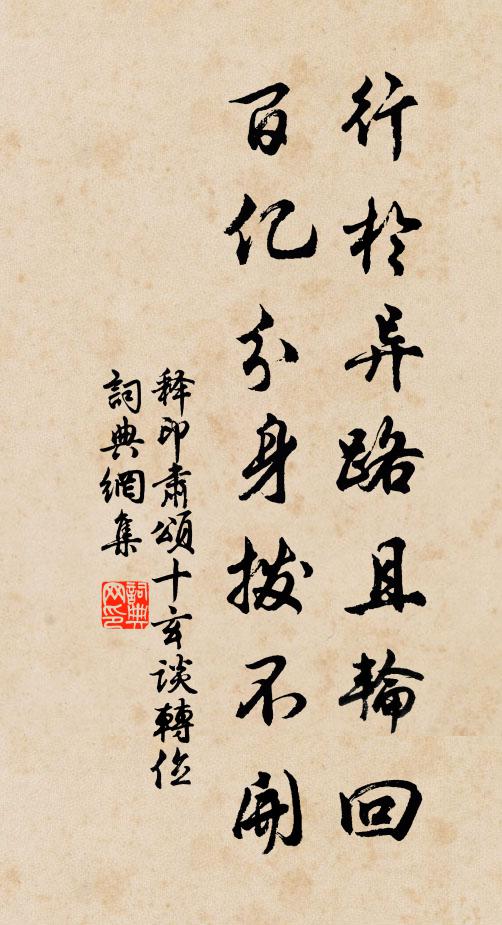 行於异路且輪回
百亿分身拨不開
释印肃頌十玄談轉位
詞典網集
詞典
网印